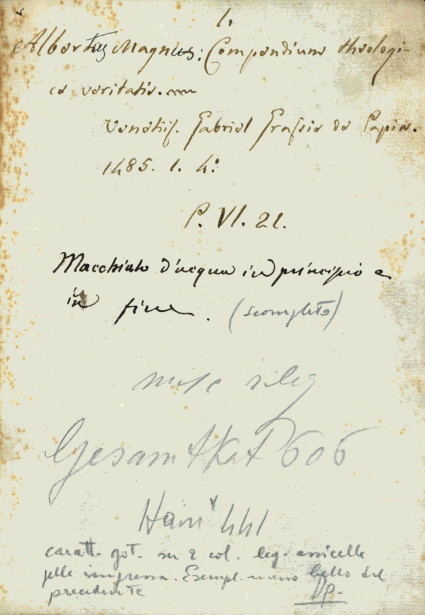 1.
Albertus Magnus: Compendium theologi-
ca veritatis.
Venetiis. Gabriel Grassis de Papia.
1485. 1. 4º
P. VI. 21.
Macchiato d'acqua in principio e
in fine. (scompleto)
Gesamtkat 606
Hain 441
caratt. got. su 2 col. leg. assicelle
pelle impressa. Esempl. meno bello del
precedente